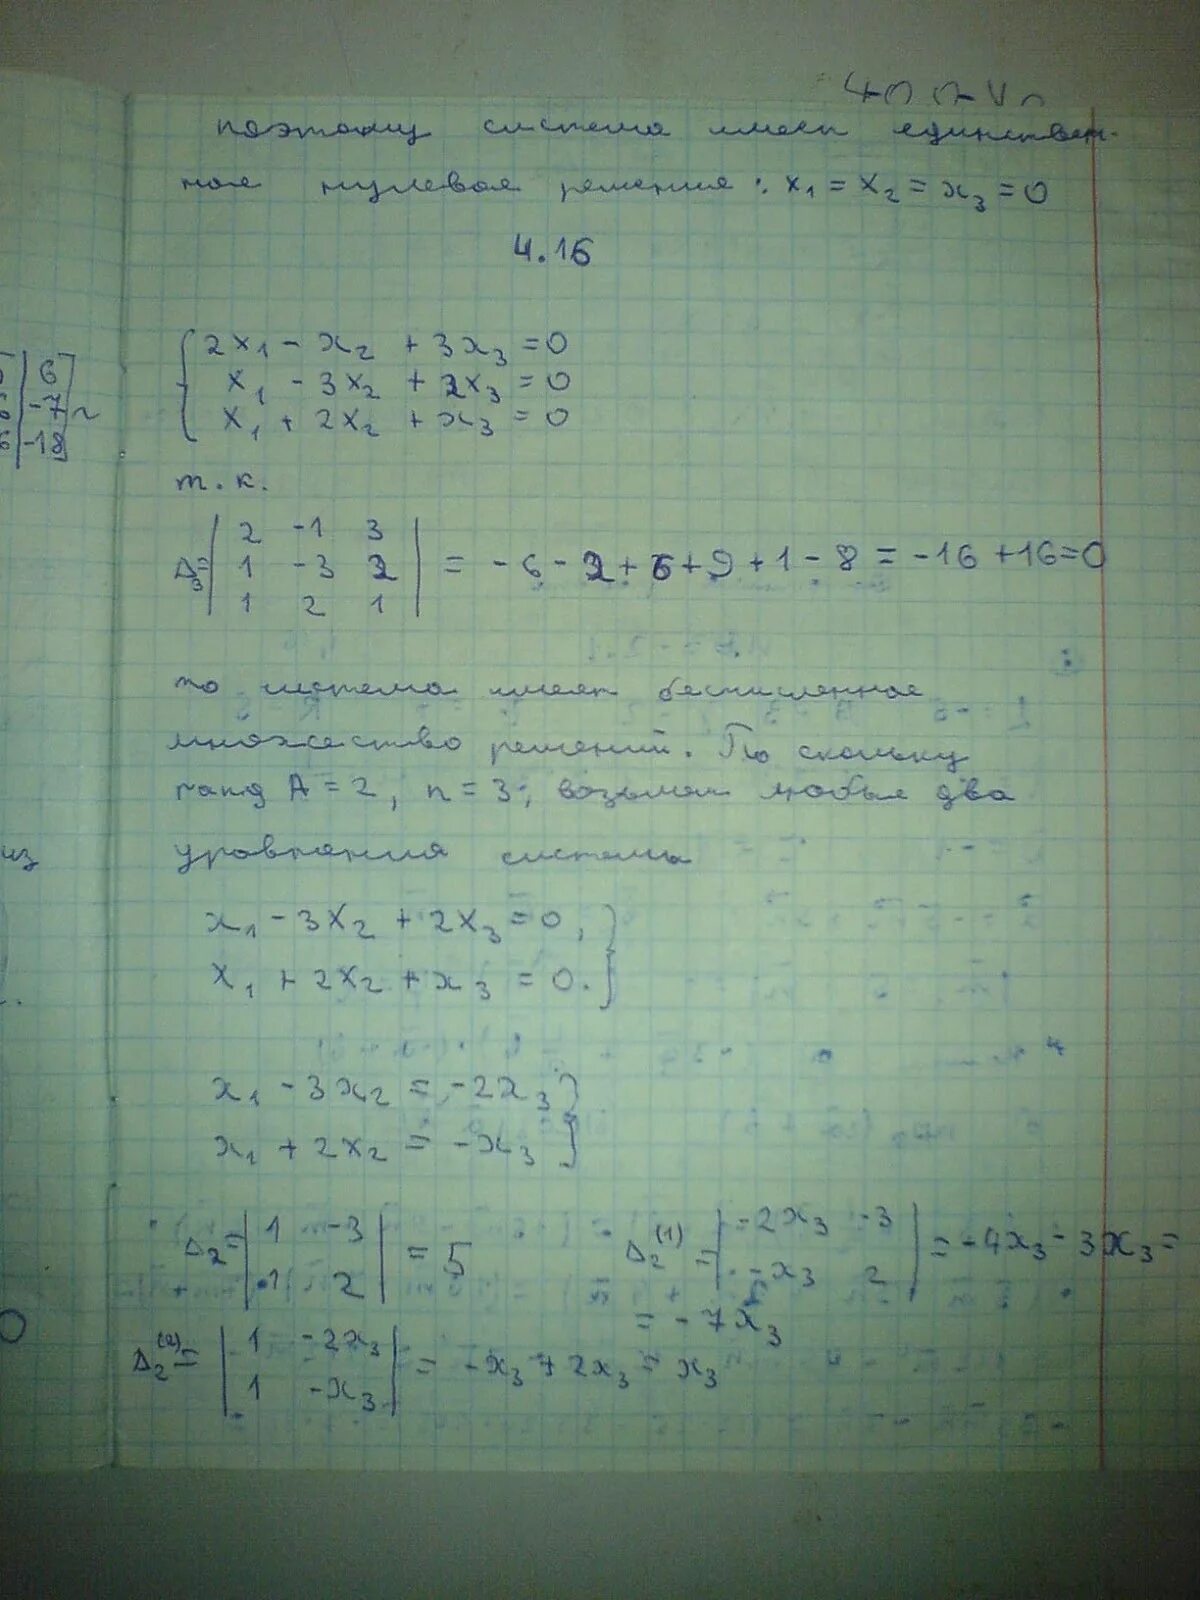 поэтому система имеет единствен-
ное нулевое решение: x₁ = x₂ = x₃ = 0
4.16
2x₁ - x₂ + 3x₃ = 0
x₁ - 3x₂ + 2x₃ = 0
x₁ + 2x₂ + x₃ = 0
6
-7
-18
т.к.
Δ₃ = | 2 -1 3 |
| 1 -3 2 | = -6 - 2 + 6 + 9 + 1 - 8 = -16 + 16 = 0
| 1 2 1 |
то система имеет бесчисленное
множество решений. По скольку
ранд A = 2, n = 3; возьмем любые два
уравнения системы
из
x₁ - 3x₂ + 2x₃ = 0,
x₁ + 2x₂ + x₃ = 0.
x₁ - 3x₂ = -2x₃
x₁ + 2x₂ = -x₃
Δ₂ = | 1 -3 | = 5 Δ₂⁽¹⁾ = | -2x₃ -3 | = -4x₃ - 3x₃ =
| 1 2 | | -x₃ 2 |
= -7x₃
Δ₂⁽²⁾ = | 1 -2x₃ | = -x₃ + 2x₃ = x₃
| 1 -x₃ |